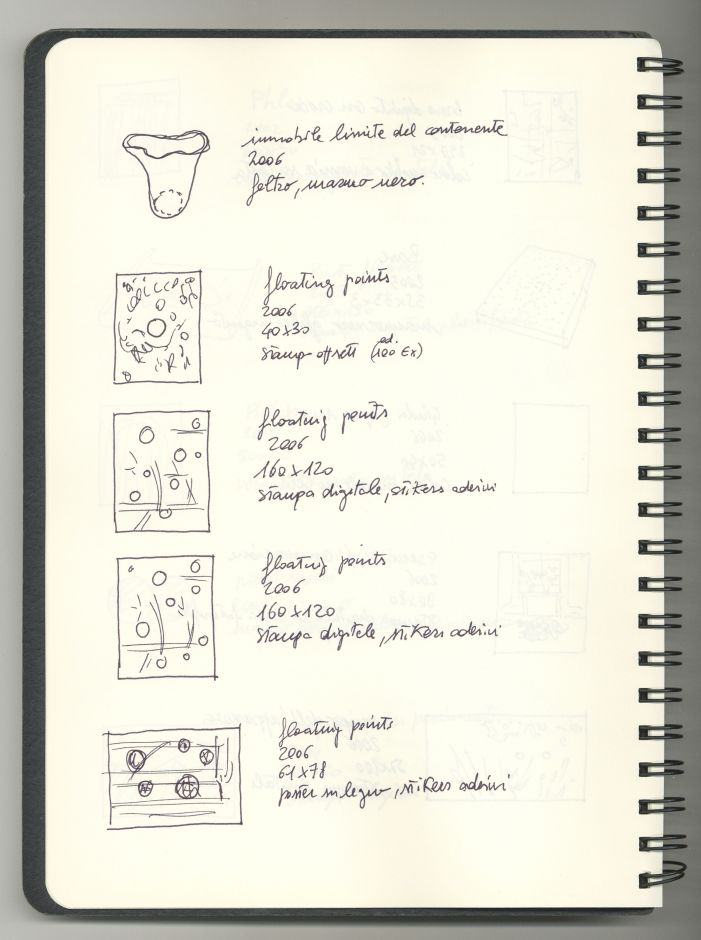 immobile limite del contenente
2006
feltro, marmo nero.
floating points
2006
40x30
stamp offsett (ed. 100 Ex)
floating points
2006
160x120
stampa digitale, stikers adesivi
floating points
2006
160x120
stampa digitale, stikers adesivi
floating points
2006
61x78
poster su legno, stikers adesivi